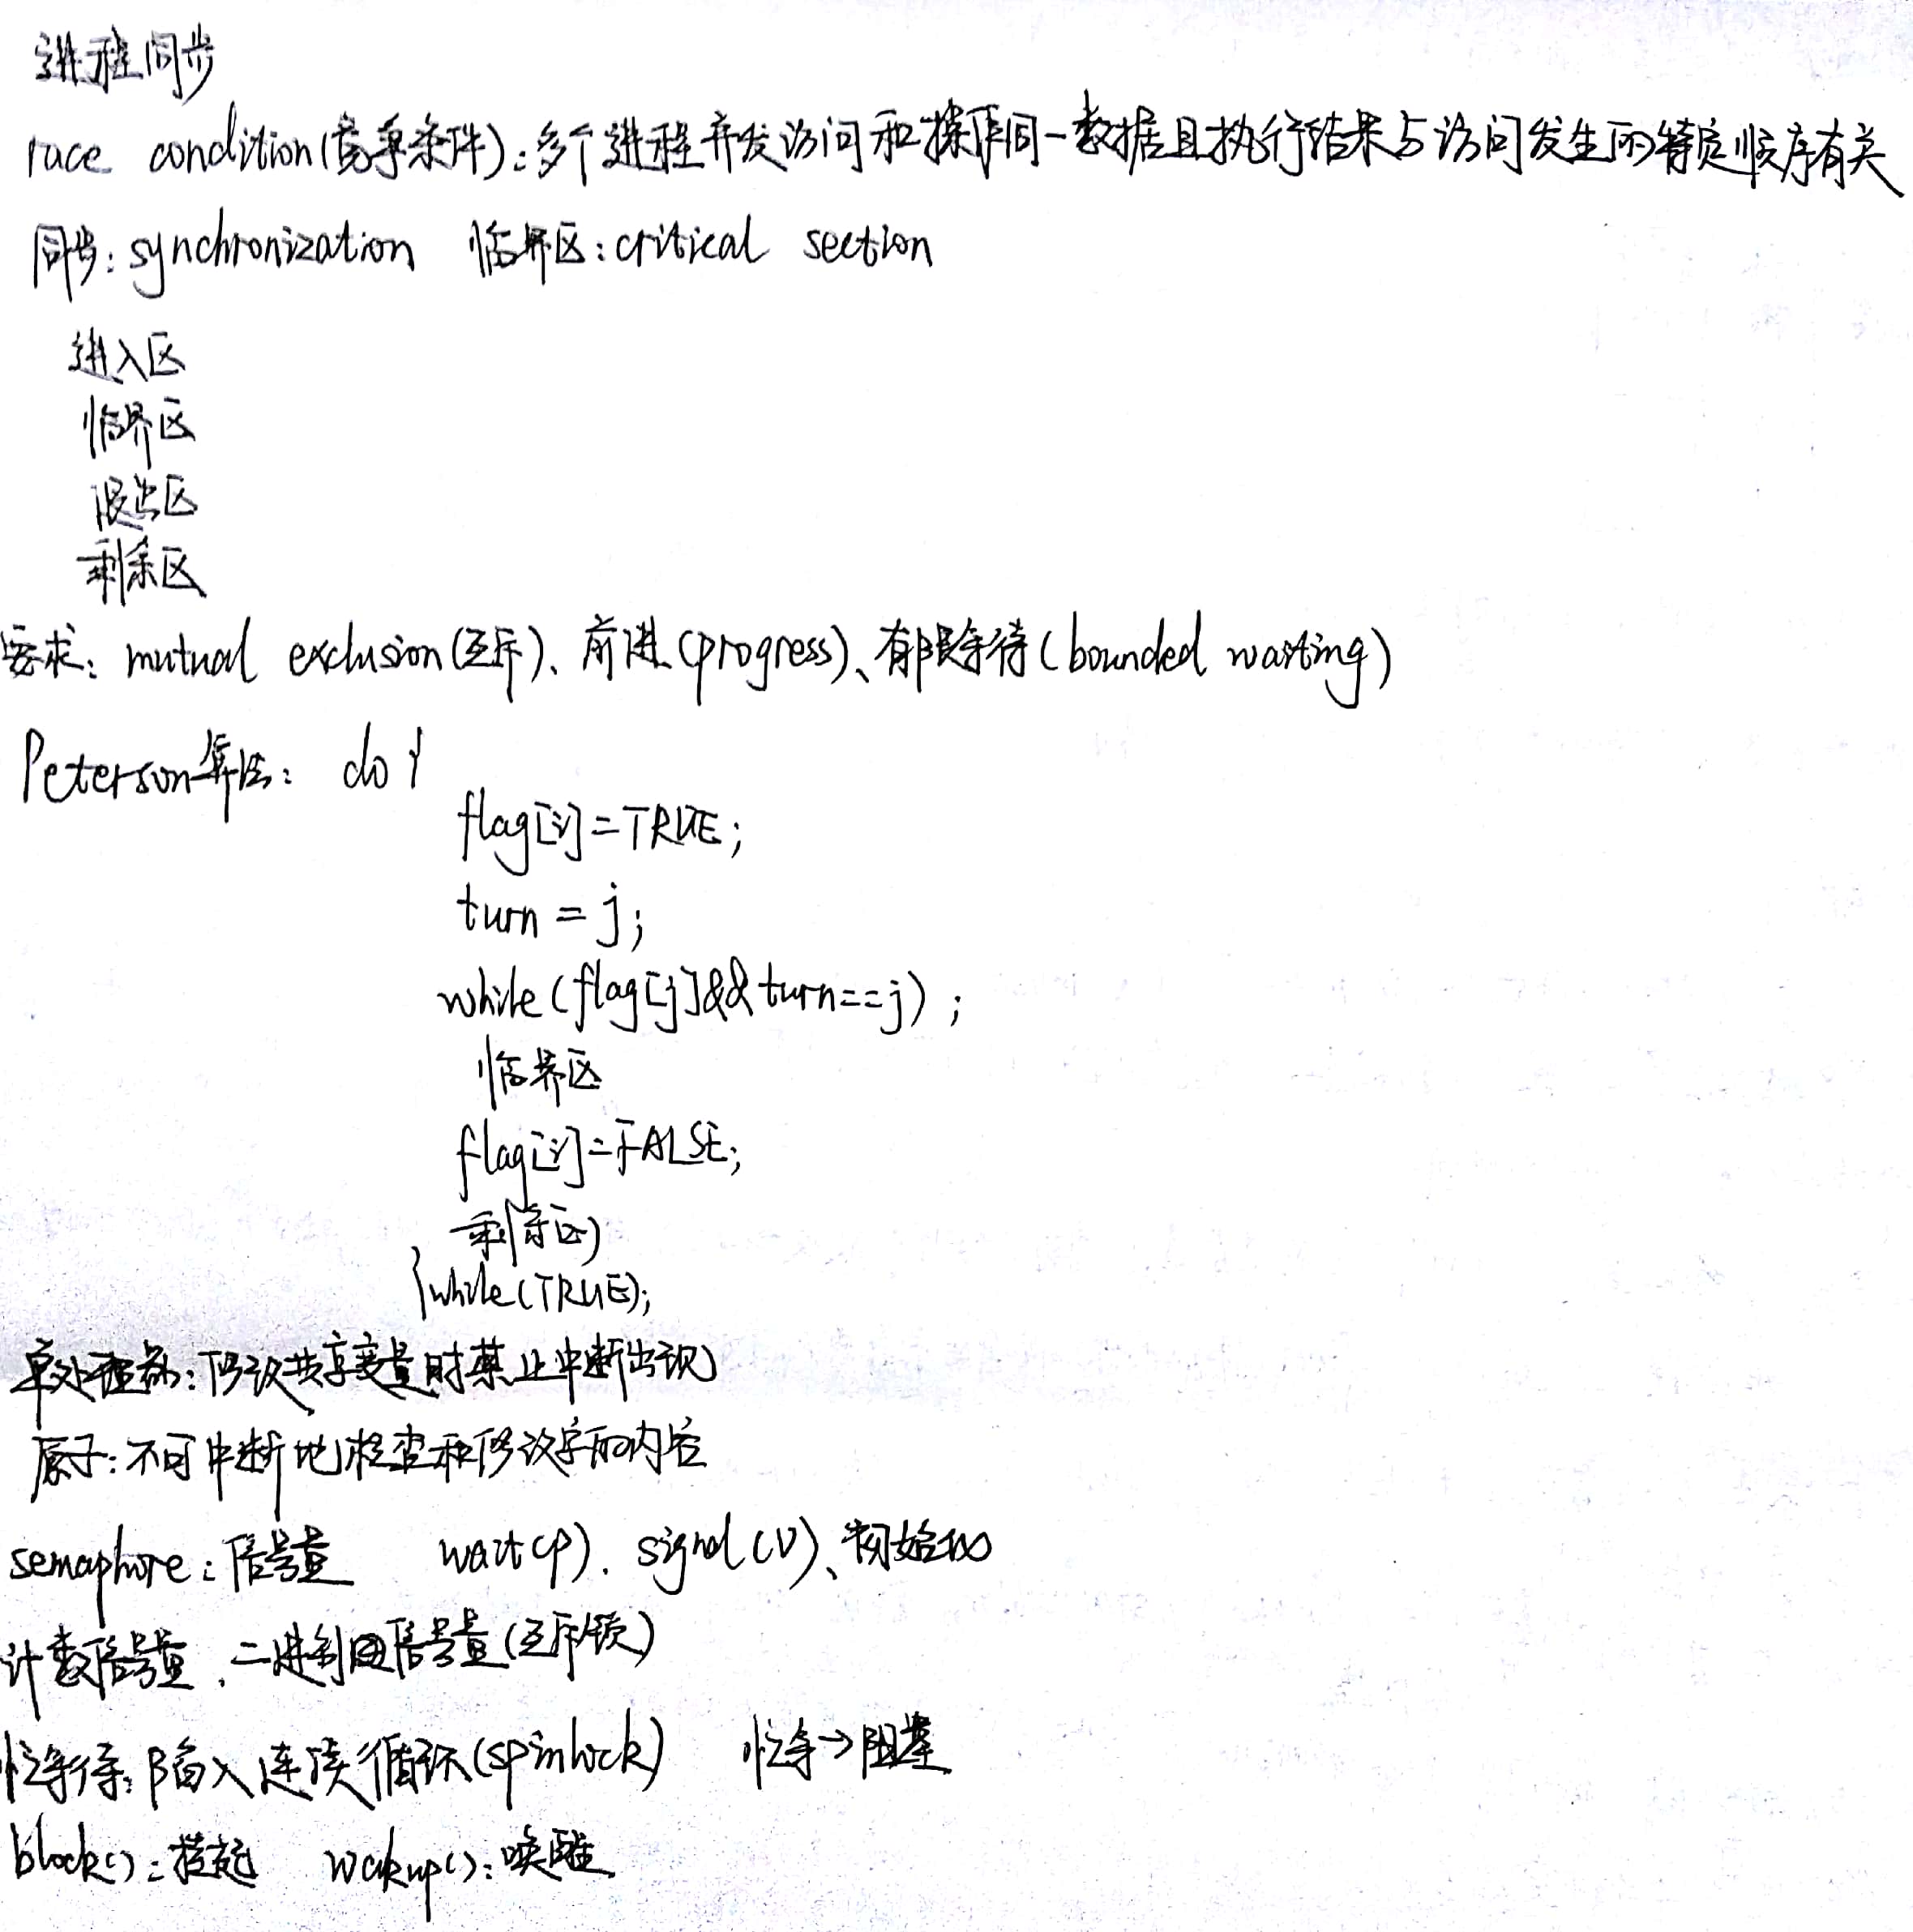 进程同步
race condition(竞争条件):多个进程并发访问和操作同一数据且执行结果与访问发生的特定顺序有关
同步: synchronization 临界区: critical section
进入区
临界区
退出区
剩余区
要求: mutual exclusion(互斥)、前进(progress)、有限等待(bounded waiting)
Peterson算法: do {
flag[i]=TRUE;
turn = j;
while(flag[j]&&turn==j) ;
临界区
flag[i]=FALSE;
剩余区
}while(TRUE);
单处理器:修改共享变量时禁止中断出现
原子:不可中断地检查和修改字的内容
semaphore: 信号量 wait(P)、signal(V)、初始化
计数信号量、二进制信号量(互斥锁)
忙等待:陷入连续循环(spinlock) 忙等→阻塞
block():挂起 wakup():唤醒